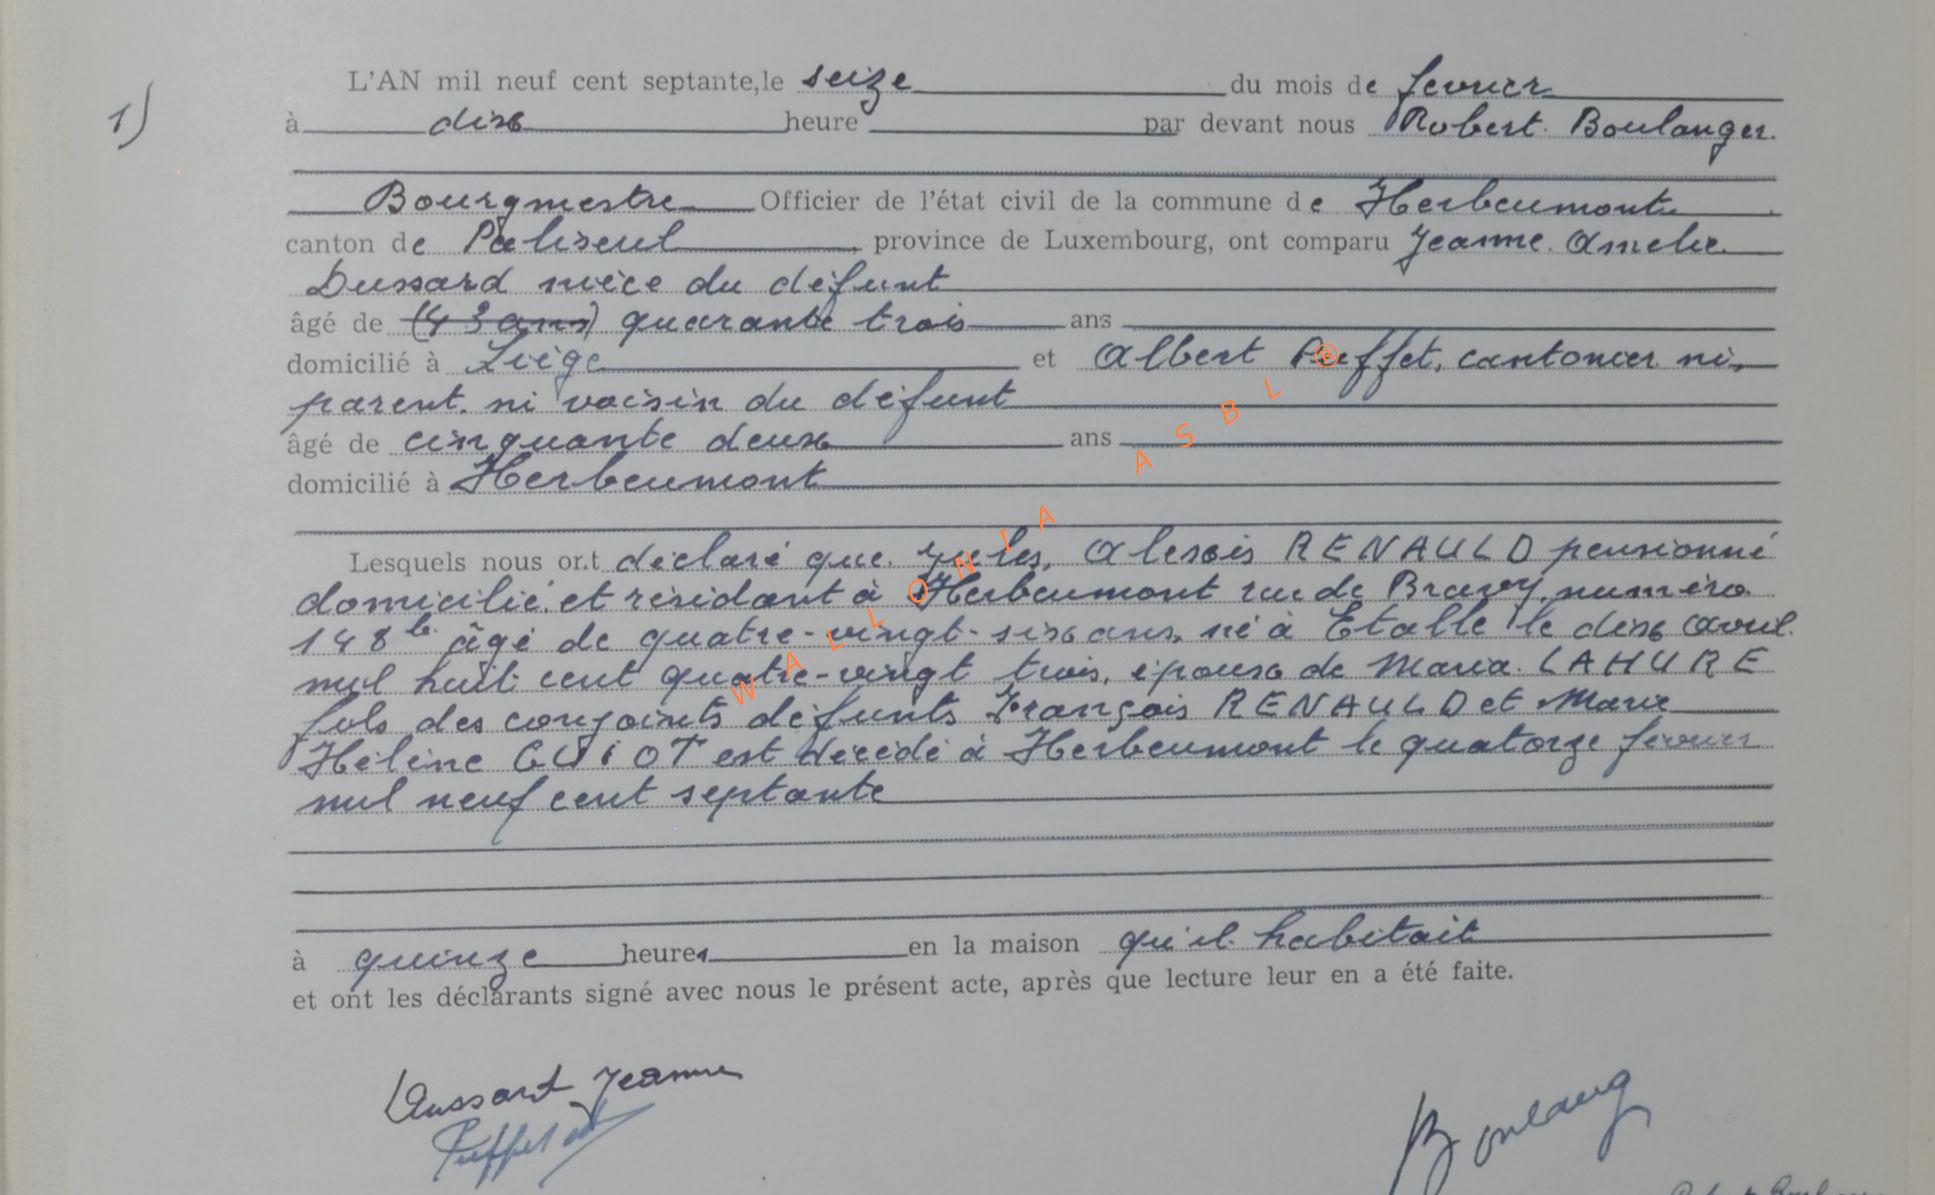 1)
L'AN mil neuf cent septante, le seize du mois de fevrier
à dix heure par devant nous Robert. Boulanger.
Bourgmestre Officier de l'état civil de la commune de Herbeumont
canton de Paliseul, province de Luxembourg, ont comparu Jeanne. Amelie
Dussard nièce du défunt
âgé de (43 ans) quarante trois ans
domicilié à Liège et Albert Puffet, cantonier ni,
parent. ni voisin du défunt
âgé de cinquante deux ans
domicilié à Herbeumont
Lesquels nous ont déclaré que. Jules, Alexis RENAULD pensionné
domicilié. et résidant à Herbeumont rue de numéro
148 b. âgé de quatre-vingt-six ans, né à Etalle le dix avril.
mil huit cent quatre-vingt trois, époux de Maria. LAHURE
fils des conjoints défunts François RENAULD et Marie
Hélène GUIOT est décédé à Herbeumont le quatorze fevrier
mil neuf cent septante
à quinze heures en la maison qu'il habitait
et ont les déclarants signé avec nous le présent acte, après que lecture leur en a été faite.
Dussart Jeanne
Puffet
Boulang
WALLONIA ASBL ®